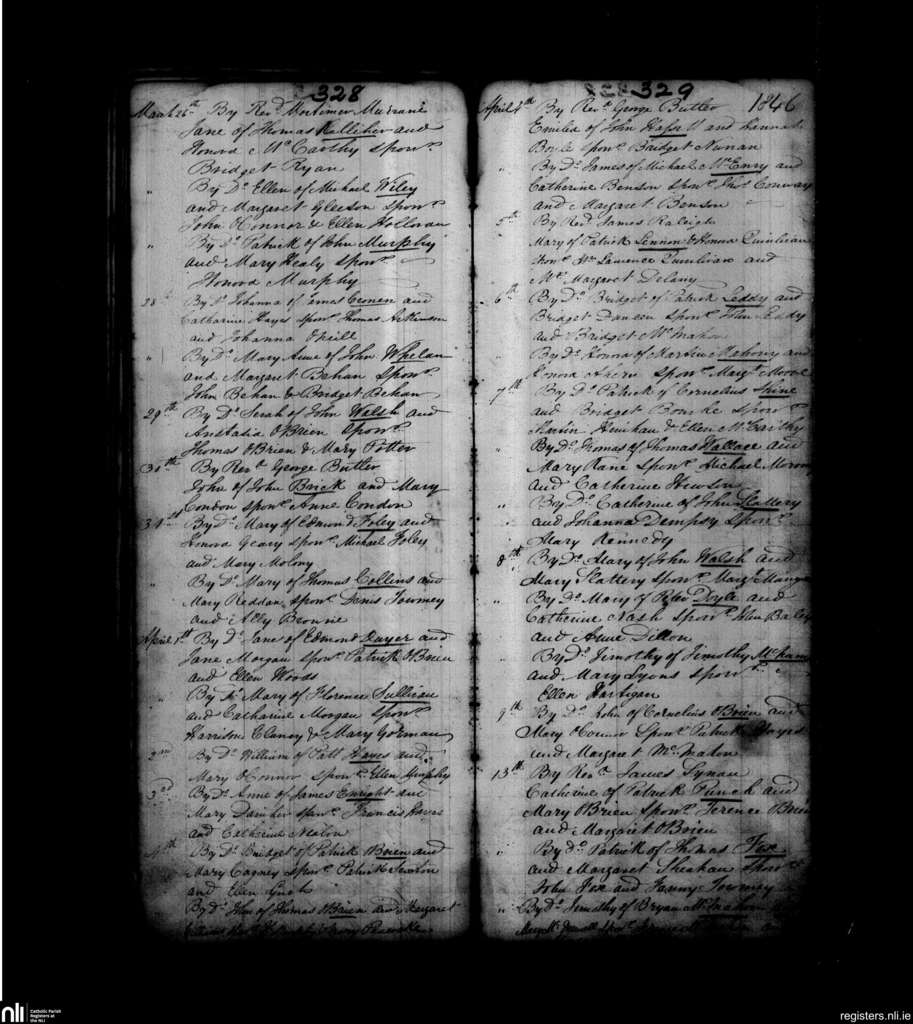 328
March 26th By Revd Mortimer
Jane of Thomas Kalliher and
Honora McCarthy Sponrs
Bridget Ryan
" By Do Ellen of Michael Wiley
and Margaret Gleeson Sponrs
John Connor & Ellen Holloran
" By Do Patrick of John Murphy
and Mary Healy Sponrs
Honora Murphy
28 By Do Johanna of James and
Catharine Hayes Sponrs Thomas Atkinson
and Johanna O'Neill
" By Do Mary Anne of John Whelan
and Margaret Behan Sponrs
John Behan & Bridget Behan
29th By Do Sarah of John Walsh and
Anstatia O'Brien Sponrs
Thomas O'Brien & Mary Potter
30th By Revd George Butler
John of John Brick and Mary
Condon Sponrs Anne Condon
31st By Do Mary of Edmond Foley and
Honora Geary Sponrs Michael Foley
and Mary Molony
" By Do Mary of Thomas Collins and
Mary Reddan Sponrs Denis Toomey
and Ally Browne
April 1st By Do Jane of Edmond Dwyer and
Jane Morgan Sponrs Patrick O'Brien
and Ellen Woods
" By Do Mary of Florence Sullivan
and Catharine Morgan Sponrs
Harrison Clancy & Mary Gorman
2nd By Do William of Patt Hayes and
Mary O'Connor Sponrs Ellen Murphy
3rd By Do Anne of James Enright and
Mary Sponrs Francis
and Catherine
4th By Do Bridget of Patrick O'Brien and
Mary Cagney Sponrs Patrick
and Ellen Lynch
By Do John of Thomas O'Brien and Margaret
329
1846
April 4th By Revd George Butler
Emilia of John and Hannah
Boyle Sponrs Bridget Nunan
" By Do James of Michael McEnry and
Catherine Benson Sponrs Conway
and Margaret Benson
5th By Revd James Raleigh
Mary of Patrick Lennon & Honora Quinlivan
Sponrs Mr Laurence Quinlivan and
Mrs Margaret Delany
6th By Do Bridget of Patrick Leddy and
Bridget Sponrs John Leddy
and Bridget McMahon
" By Do Honora of Martin Mahony and
Honora Ahern Sponrs Margt Moore
7th By Do Patrick of Cornelius Shine
and Bridget Bourke Sponrs
Martin & Ellen McCarthy
" By Do Thomas of Thomas Wallace and
Mary Kane Sponrs Michael
and Catherine Hewson
" By Do Catherine of John Slattery
and Johanna Dempsy Sponrs
Mary Kennedy
8th By Do Mary of John Walsh and
Mary Slattery Sponrs Margt
" By Do Mary of Peter Doyle and
Catherine Nash Sponrs John Bailey
and Anne Dillon
" By Do Timothy of Timothy
and Mary Lyons Sponrs
Ellen Hartigan
9th By Do John of Cornelius O'Brien and
Mary O'Connor Sponrs Patrick Hayes
and Margaret McMahon
13th By Revd James Synan
Catherine of Patrick Punch and
Mary O'Brien Sponrs Terence O'Brien
and Margaret O'Brien
" By Do Patrick of Thomas Fox
and Margaret Sheahan Sponrs
John Fox and Fanny Toomey
" By Do Timothy of Bryan McMahon
nli
Catholic Parish
Registers at
the NLI
registers.nli.ie